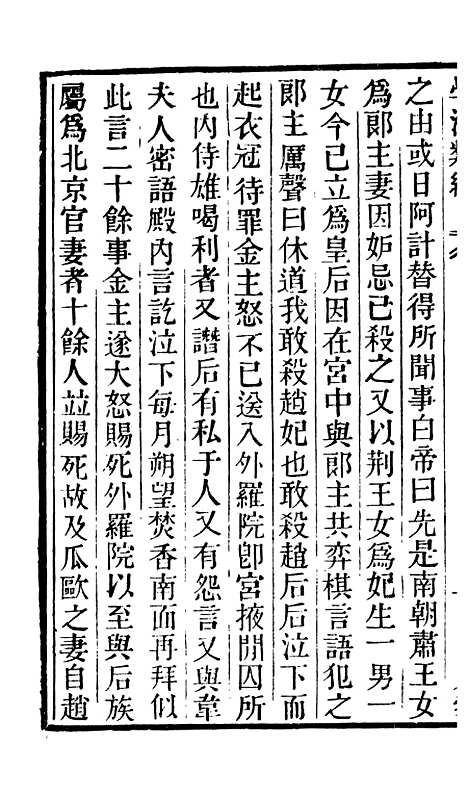 之由或日阿計替得所聞事白帝曰先是南朝肅王女
爲郞主妻因妒忌已殺之又以荆王女爲妃生一男一
女今已立爲皇后因在宮中與郞主共弈棋言語犯之
郞主厲聲曰休道我敢殺趙妃也敢殺趙后后泣下而
起衣冠待罪金主怒不已送入外羅院卽宮掖閒囚所
也內侍雄喝利者又譖后有私于人又有怨言又與韋
夫人密語殿內言訖泣下每月朔望焚香南面再拜似
此言二十餘事金主遂大怒賜死外羅院以至與后族
屬爲北京官妻者十餘人竝賜死故及瓜歐之妻自趙